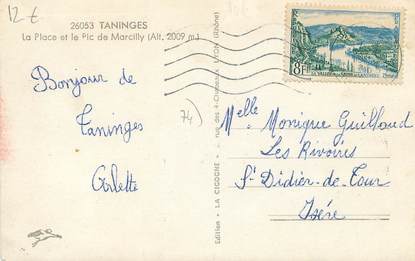 12 €
26053 TANINGES
La Place et le Pic de Marcilly (Alt. 2009 m.)
Bonjour de
Taninges
Arlette
74)
Edition - LA CIGOGNE - rue des 4-Chapeaux LYON (Rhône)
8F
Melle Monique Guilloud
Les Rivoires
St Didier-de-Tour
Isère